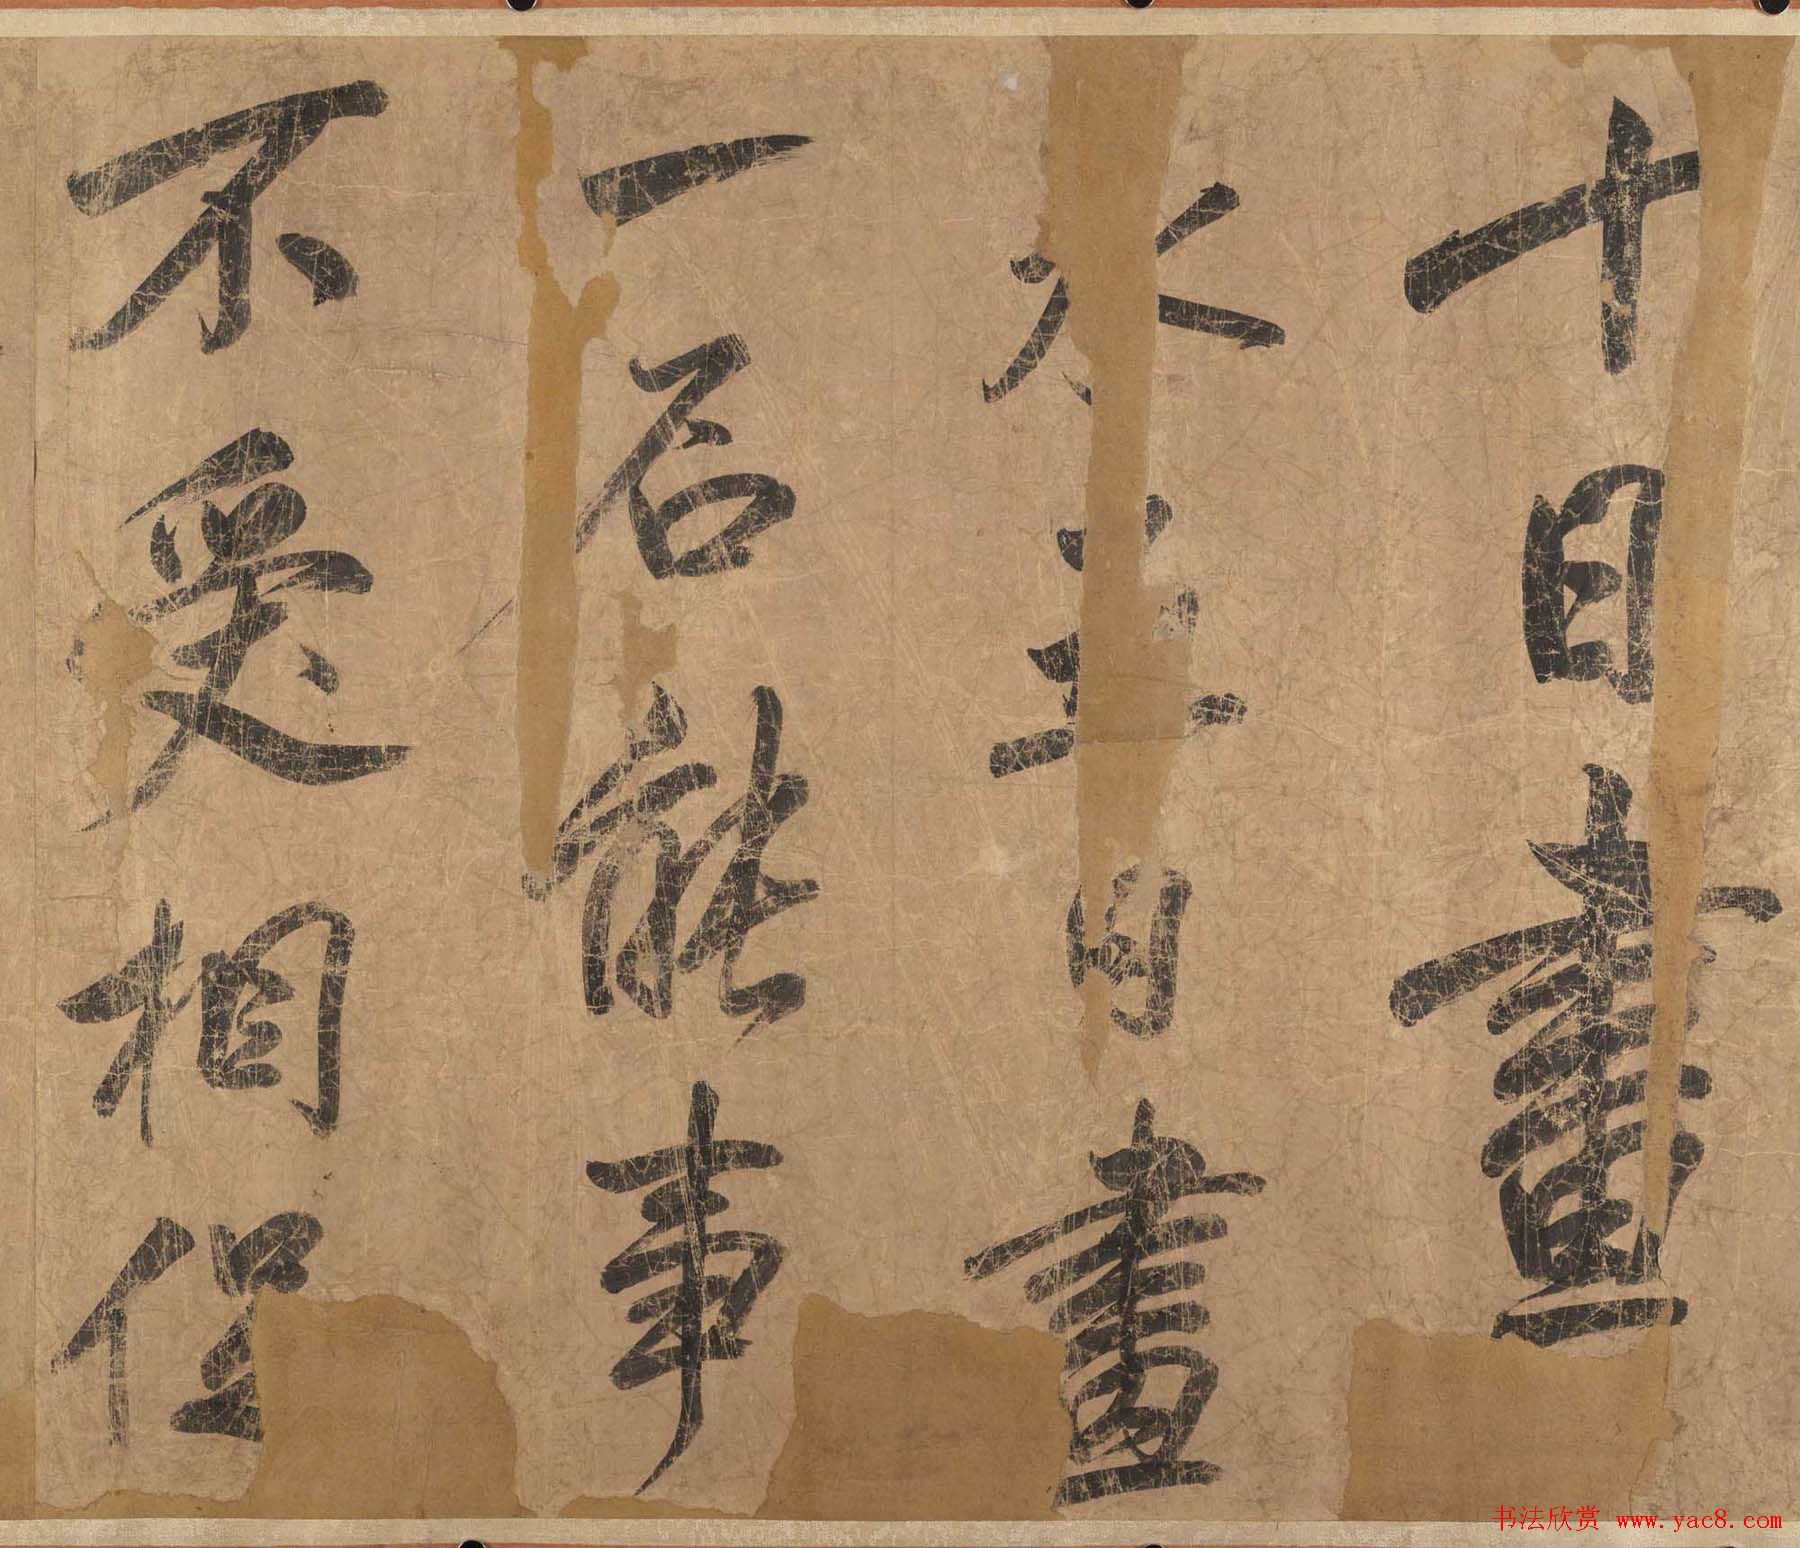 十日畫
水五日畫
一石能事
不受相促
书法欣赏 www.yac8.com